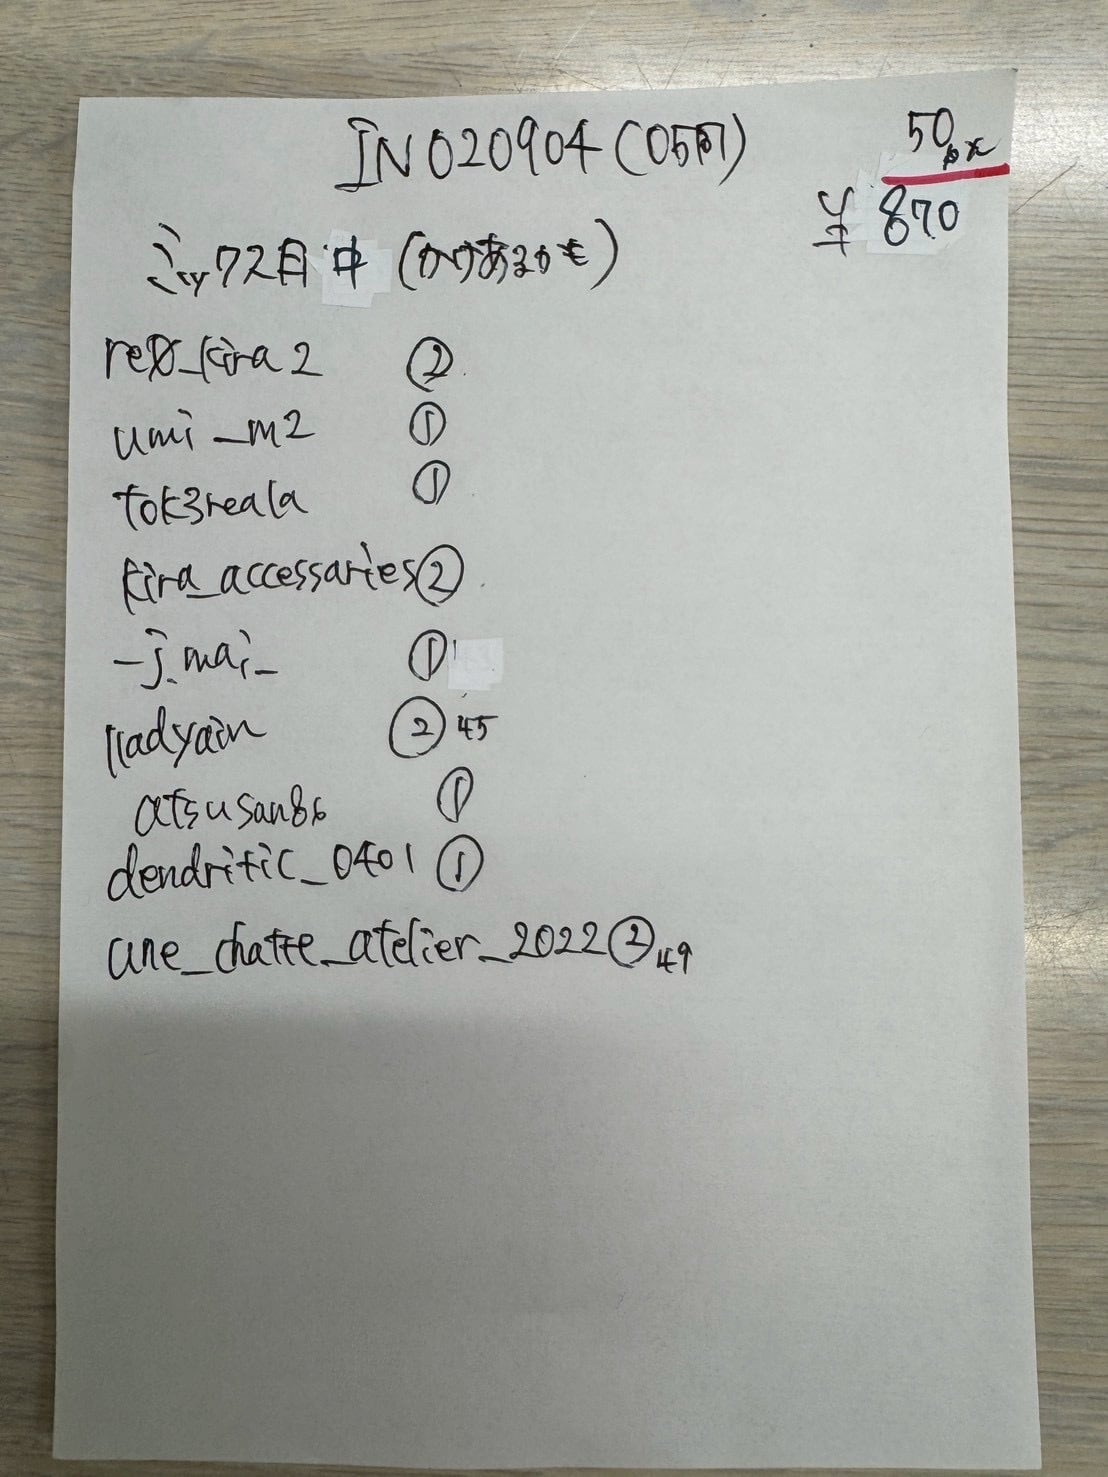 IN020904(05冈)
50px
¥870
ミックス目中(かけあるかも)
re8_kira2 ②
umi_m2 ①
tok3reala ①
kira_accessaries②
_j.mai_ ①
lladyain ② 45
atsusan86 ①
dendritic_0401 ①
une_chatte_atelier_2022②49